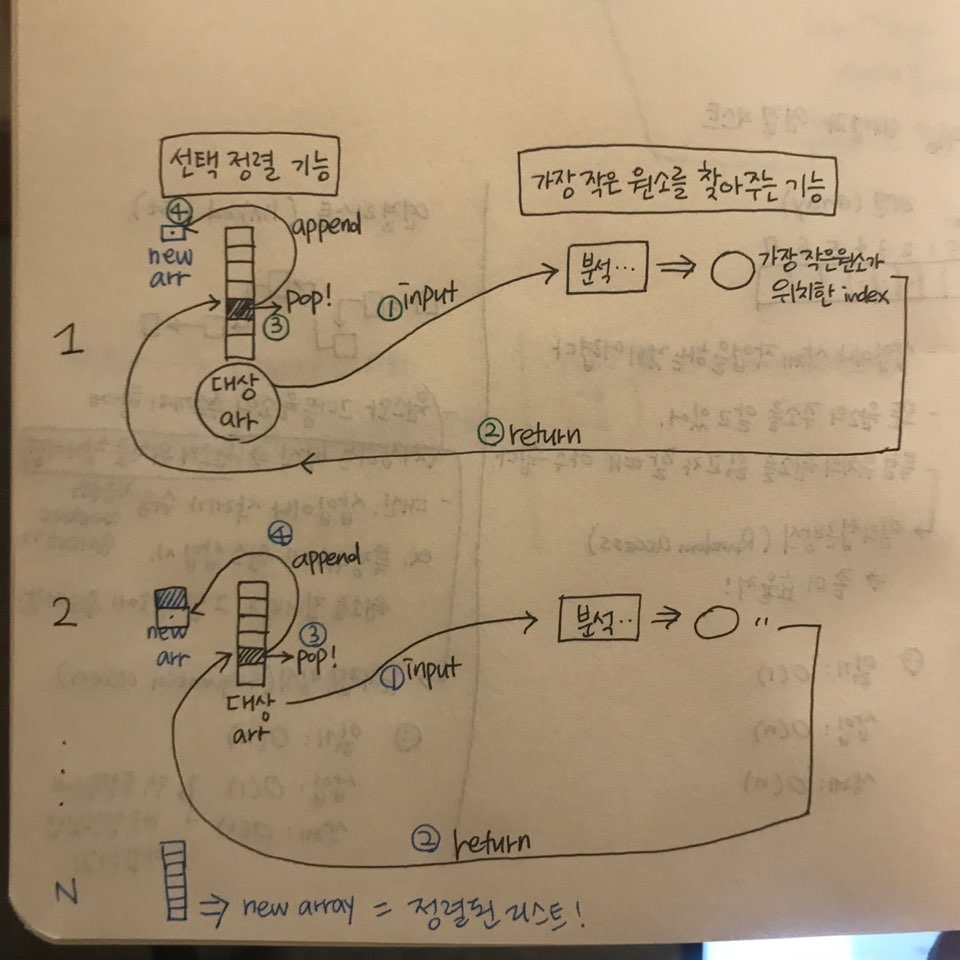 선택 정렬 기능
가장 작은 원소를 찾아주는 기능
④
append
new
arr
pop!
③
① input
분석...
⇒
가장작은원소가
위치한 index
1
대상
arr
② return
④
append
2
new
arr
③
pop!
① input
분석..
⇒
"
대상
arr
② return
N
⇒ new array = 정렬된 리스트!